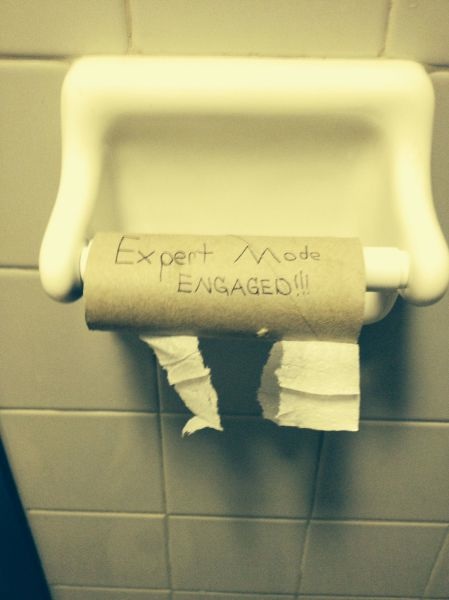 Expert Mode
ENGAGED!!!